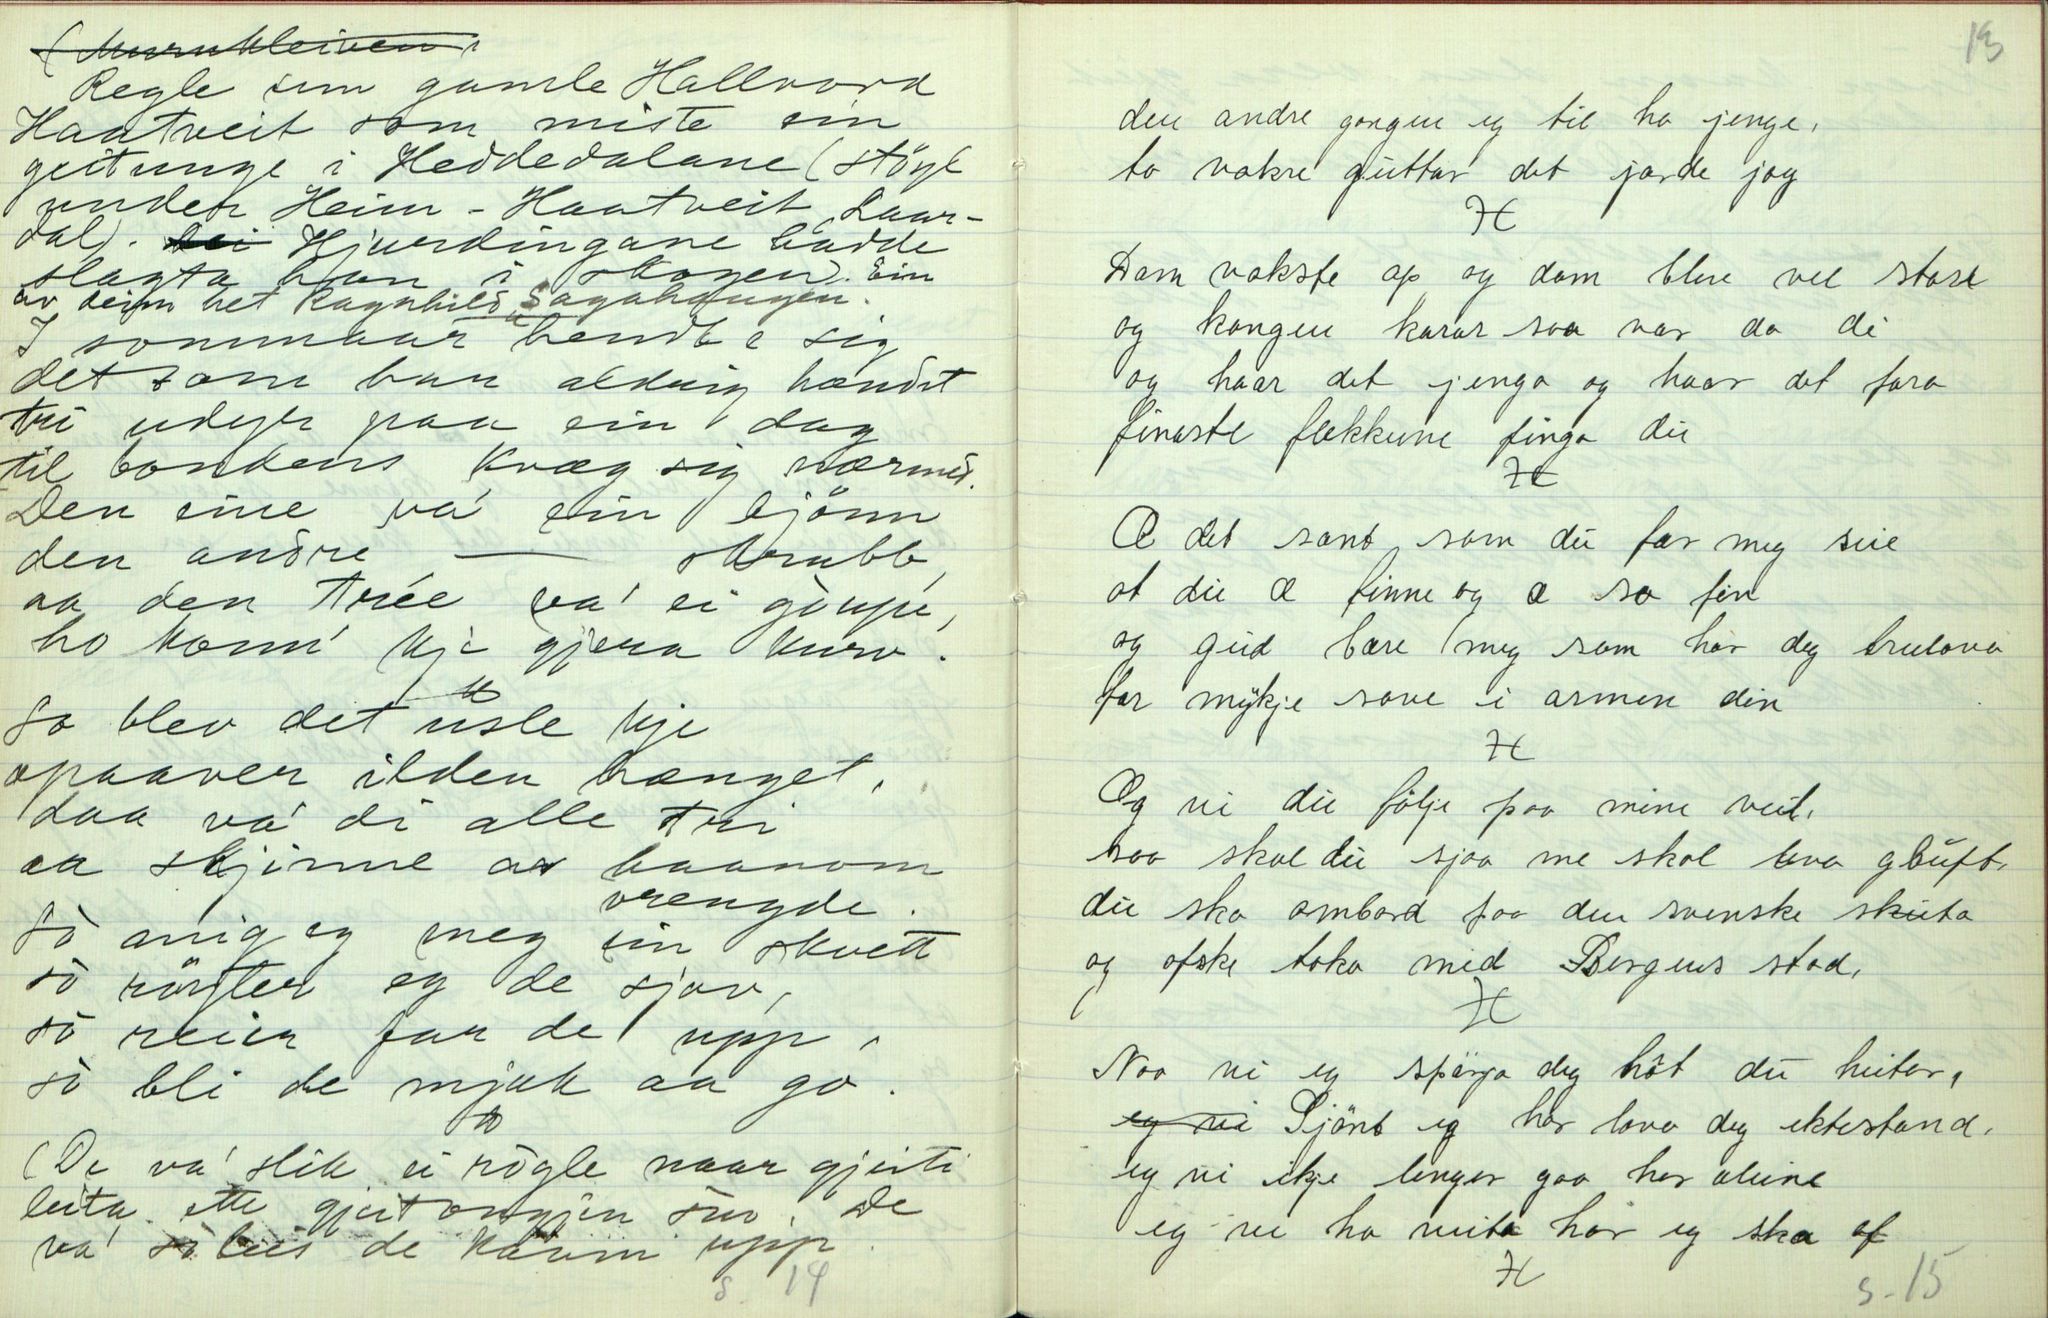 Regle um gamle Hallvord
Haatveit som miste sin
geitunge i Heddedalane (stöyl
under Heim-Haatveit, Laar-
dal). Hjuringane hadde
slagta han i skogen). Ein
av deim het Ragnhild Sagahaugen.
I sommaar hendte sig
det som han aldrig hændt
tri udyr paa ein dag
til bondens kvæg sig nærmed.
Den eine va' ein bjönn
den andre — skrubb,
aa den trée va' ei göupe,
ho konn' kje gjera kurv.
So blev det usle kje
opaaver ilden hænget,
daa va' di alle tri
aa skjinne av haanom
vrengde.
Sò anig eg meg ein skvett
sò röyster eg de sjav,
sò reier far de upp,
sò bli de mjuk aa go.
(De va' slik ei rögle naar gjeiti
leita ette gjeitongjen sin. De
va' so leis de kaam upp.
s. 14
13
den andre gongen eg til ho jenge,
to vakre guttar det jorde jog
Dam vokste op og dam bleve vel store
og kongen karar saa var da di
og haar det jenga og haar det fara
finaste flekkune finga di
Æ det sant som du for meg seie
at du æ finne og æ so fin
og gud bære meg som har deg trulova
for mykje sove i armen din
Og vi du följe paa mine veie,
saa skal du sjaa me skal leva glupt,
du ska ombord paa den svenske skuta
og ofske taka med Bergens stad,
Naa vi eg spörja deg höt du heiter,
eg vi Sjönt eg har lova deg ektestand.
eg vi ikje lenger gaa her aleine
eg vi ha veita hor eg ska af
s. 15